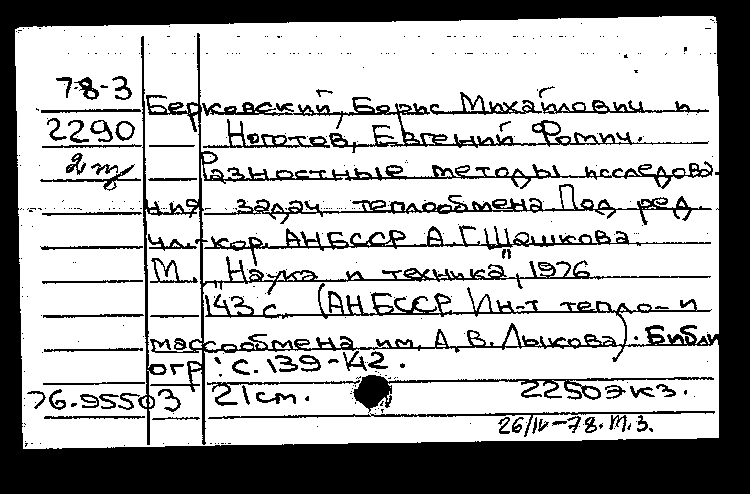 78-3
Берковский, Борис Михайлович и
2290 Ноготов, Евгений Фомич.
Разностные методы исследова-
ния задач теплообмена. Под ред.
чл.-кор. АНБССР А.Г.Шашкова.
М., „Наука и техника", 1976
143 с. (АНБССР. Ин-т тепло- и
массообмена им. А.В. Лыкова). Библи
огр: с. 139-142.
76.95503 21 cm. 2250 экз.
26/IV-78. т.з.